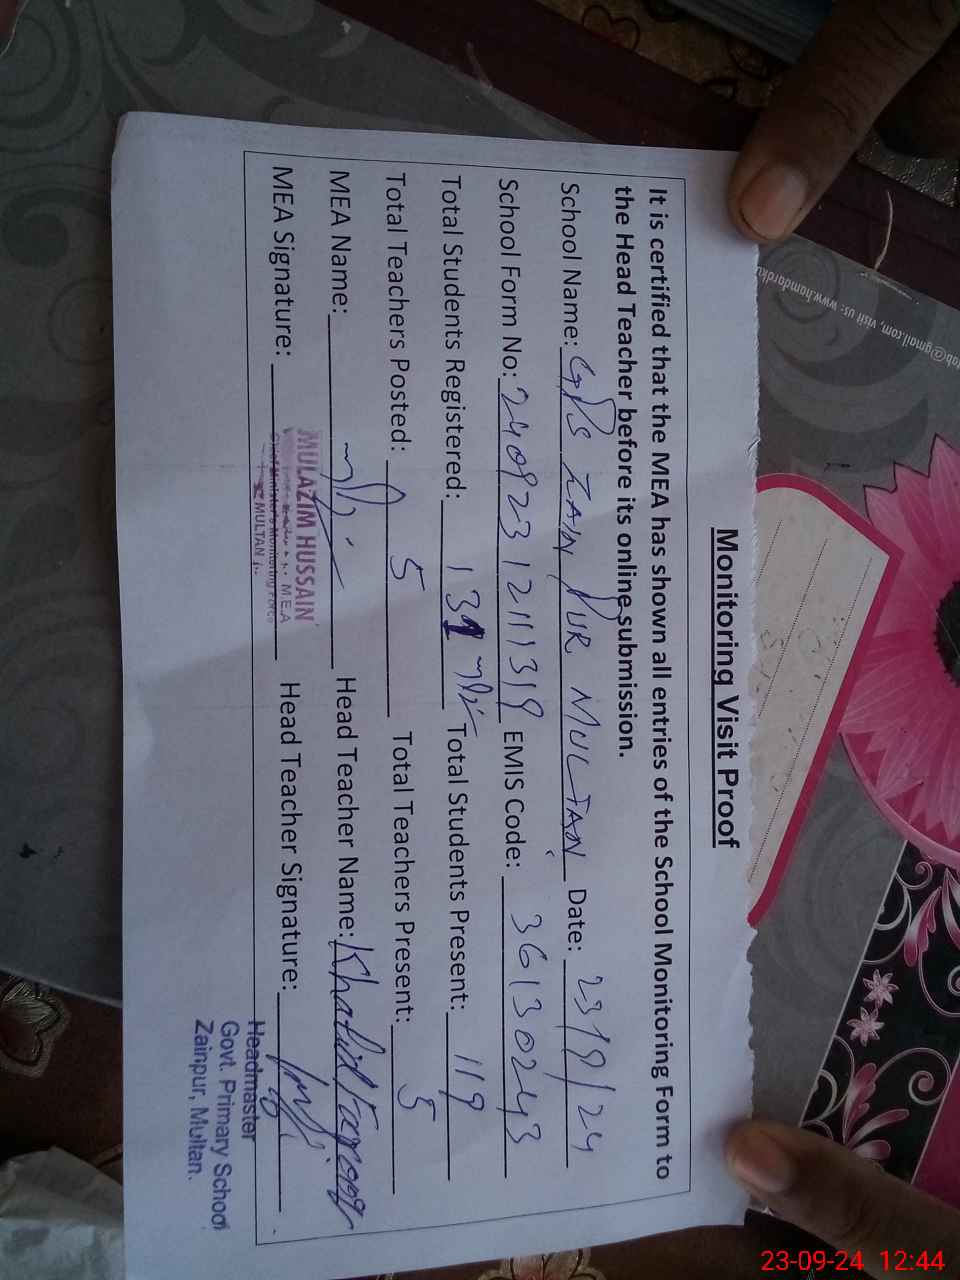 Monitoring Visit Proof
It is certified that the MEA has shown all entries of the School Monitoring Form to
the Head Teacher before its online submission.
School Name: GPS ZAIN PUR MULTAN Date: 23/9/24
School Form No: EMIS Code: 36130243
Total Students Registered: 131 Total Students Present: 119
Total Teachers Posted: 5 Total Teachers Present: 5
MEA Name: Head Teacher Name: Khalid Farooq
MEA Signature: Head Teacher Signature:
MULAZIM HUSSAIN
M.E.A
Chief Minister's Monitoring Force
MULTAN
Headmaster
Govt. Primary School
Zainpur, Multan.
@gmail.com, visit us: www.hamdardku
23-09-24 12:44